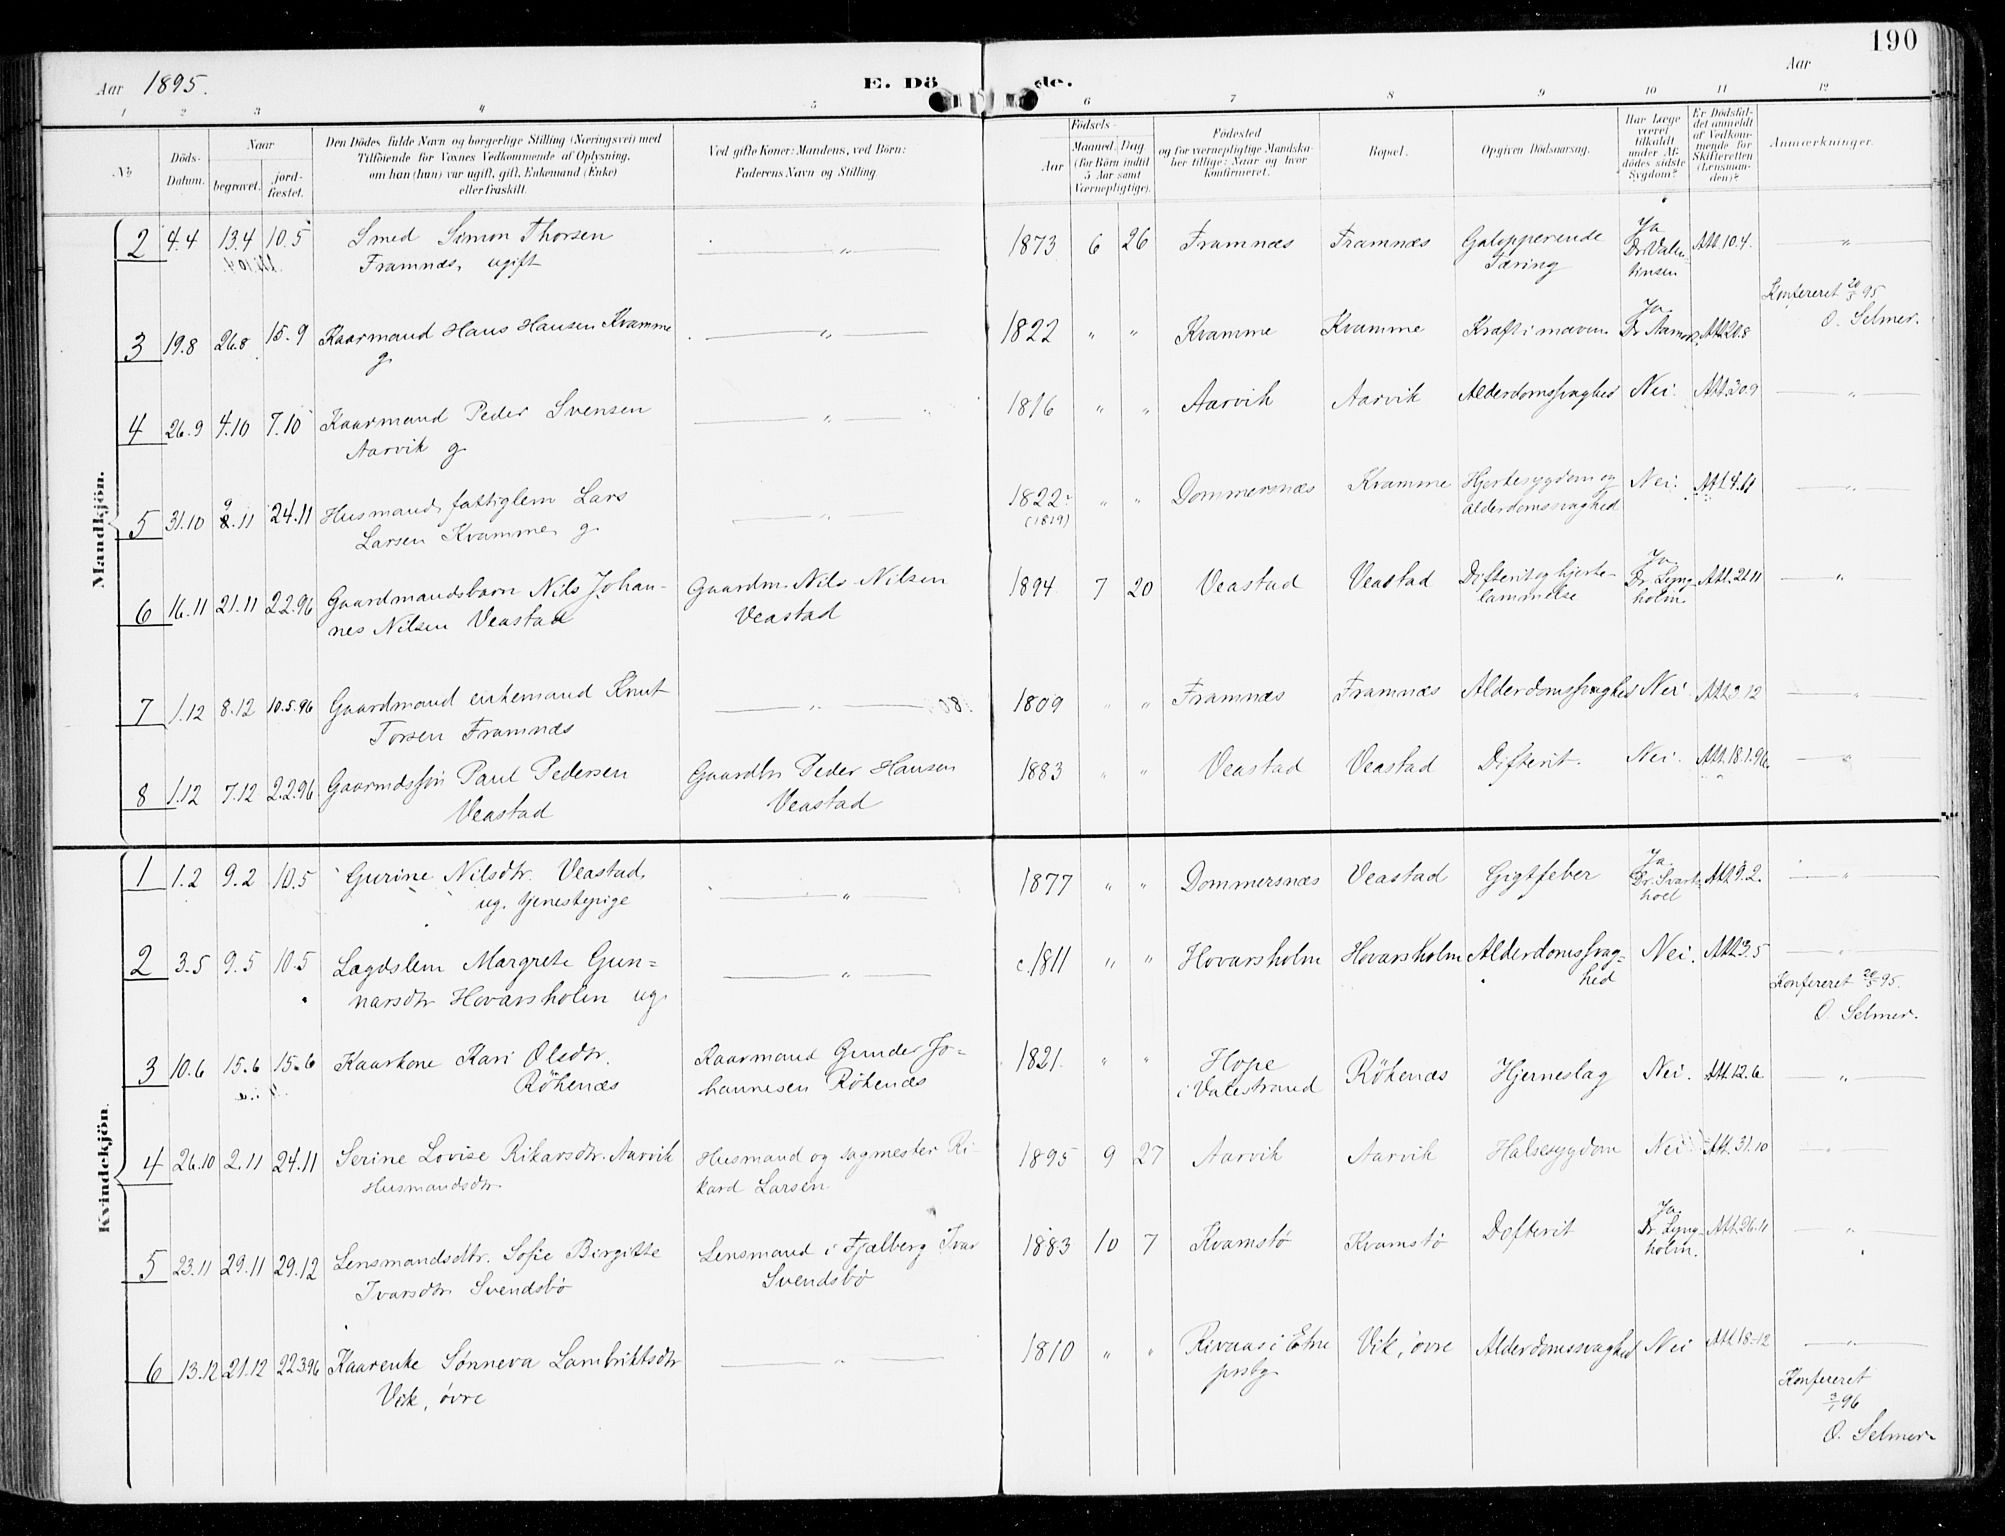 190
Aar 1895.
E. Dö de.
Aar
1 2 3 4 5 6 7 8 9 10 11 12
No
Döds-Datum.
Naar
begravet.
jord-fæstet.
Den Dödes fulde Navn og borgerlige Stilling (Næringsvei) med
Tilföiende for Voxnes Vedkommende af Oplysning,
om han (hun) var ugift, gift, Enkemand (Enke)
eller fraskilt.
Ved gifte Koner: Mandens, ved Börn:
Faderens Navn og Stilling.
Födsels-
Aar
Maaned. Dag
(for Börn indtil
5 Aar samt
Værnepligtige).
Födested
og for værnepligtige Mandska-
ber tillige: Naar og hvor
konfirmeret.
Bopæl.
Opgiven Dödsaarsag.
Har Læge
været
tilkaldt
under Af-
dödes sidste
Sygdom?
Er Dödsfal-
det anmeldt
af Vedkom-
mende for
Skifteretten
(Lensman-
den)?
Anmærkninger.
Mandkjön.
2 4.4 13.4 10.5 Smed Simon Thorsen — „ — 1873 6 26 Framnæs Framnæs Galopperende Ja Att. 10.4. „
Framnæs, ugift Tæring Dr. Valen-
tinsen
Konfereret 20/5 95
O. Selmer.
3 19.8 26.8 15.9 Kaarmand Hans Hansen Kvamme — „ — 1822 „ „ Kvamme Kvamme Kræft i maven. Ja Att. 20.8
g. Dr.
4 26.9 4.10 7.10 Kaarmand Peder Svensen — „ — 1816 „ „ Aarvik Aarvik Alderdomssvaghed Nei. Att. 30.9 — „ —
Aarvik g.
5 31.10 9.11 24.11 Husmand, fattiglem Lars — „ — 1822? „ „ Dommersnæs Kvamme Hjertesygdom og Nei. Att. 4.11 — „ —
Larsen Kvamme, g. (1819) alderdomssvaghed
6 16.11 21.11 2.2.96 Gaardmandsbarn Nils Johan- Gaardm. Nils Nilsen 1894 7 20 Veastad Veastad Difterit og hjerte- Ja Att. 21.11 — „ —
nes Nilsen Veastad Veastad lammelse Dr. Lyng-
holm.
7 1.12 8.12 10.5.96 Gaardmand enkemand Knut — „ — 1809 „ „ Framnæs Framnæs Alderdomssvaghed Nei Att. 3.12 — „ —
Torsen Framnæs
8 1.12 7.12 2.2.96 Gaarmdssøn Paul Pedersen Gaardbr Peder Hansen 1883 „ „ Veastad Veastad Difterit. Nei. Att. 18.1.96. — „ —
Veastad Veastad
Kvindekjön.
1 1.2 9.2 10.5 Gurine Nilsdtr. Veastad, — „ — 1877 „ „ Dommersnæs Veastad Gigtfeber Ja Att. 9.2. — „ —
ug. tjenestepige Dr. Svart-
hoel
2 3.5 9.5 10.5 Lægdslem Margrete Gun- — „ — c. 1811 „ „ Hovarsholm Hovarsholm Alderdomssvag- Nei. Att. 3.5 — „ —
narsdtr Hovarsholm ug. hed
Konfereret 20/5 95.
O. Selmer.
3 10.6 15.6 15.6 Kaarkone Kari Olsdtr. Kaarmand Gunder Jo- 1821. „ „ Hope Rökenæs Hjerneslag Nei. Att. 12.6. — „ —
Rökenæs hannesen Rökenæs i Valestrand
4 26.10 2.11 24.11 Serine Lovise Rikarsdtr. Aarvik Husmand og sagmester Ri- 1895 9 27 Aarvik Aarvik Halsesygdom Nei Att. 31.10 — „ —
Husmandsdtr. kard Larsen
5 23.11 29.11 29.12 Lensmandsdtr. Sofie Birgitte Lensmand i Fjælberg Ivar 1883 10 7 Kvamstø Kvamstø Difterit Ja Att. 26.11 — „ —
Ivarsdtr. Svendsbø Svendsbø Dr. Lyng-
holm.
6 13.12 21.12 22.3.96 Kaarenke Sønneva Lambriktsdtr — „ — 1810 „ „ Rivaas i Etne Vik, øvre Alderdomssvaghed Nei Att. 18-12 — „ —
Vik, øvre prstg
Konfereret
3/1 96
O. Selmer.